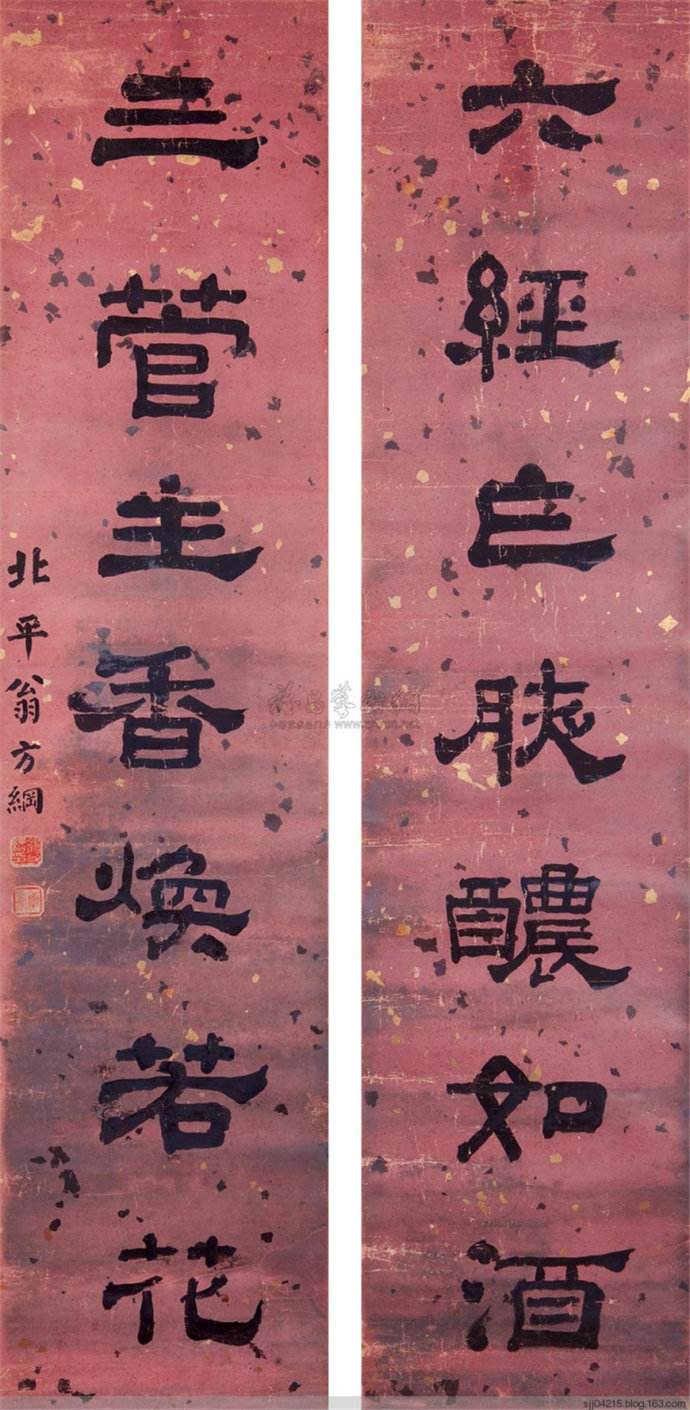 六經之腴醲如酒
三管生香煥若花
北平翁方綱
sjj04215.blog.163.com